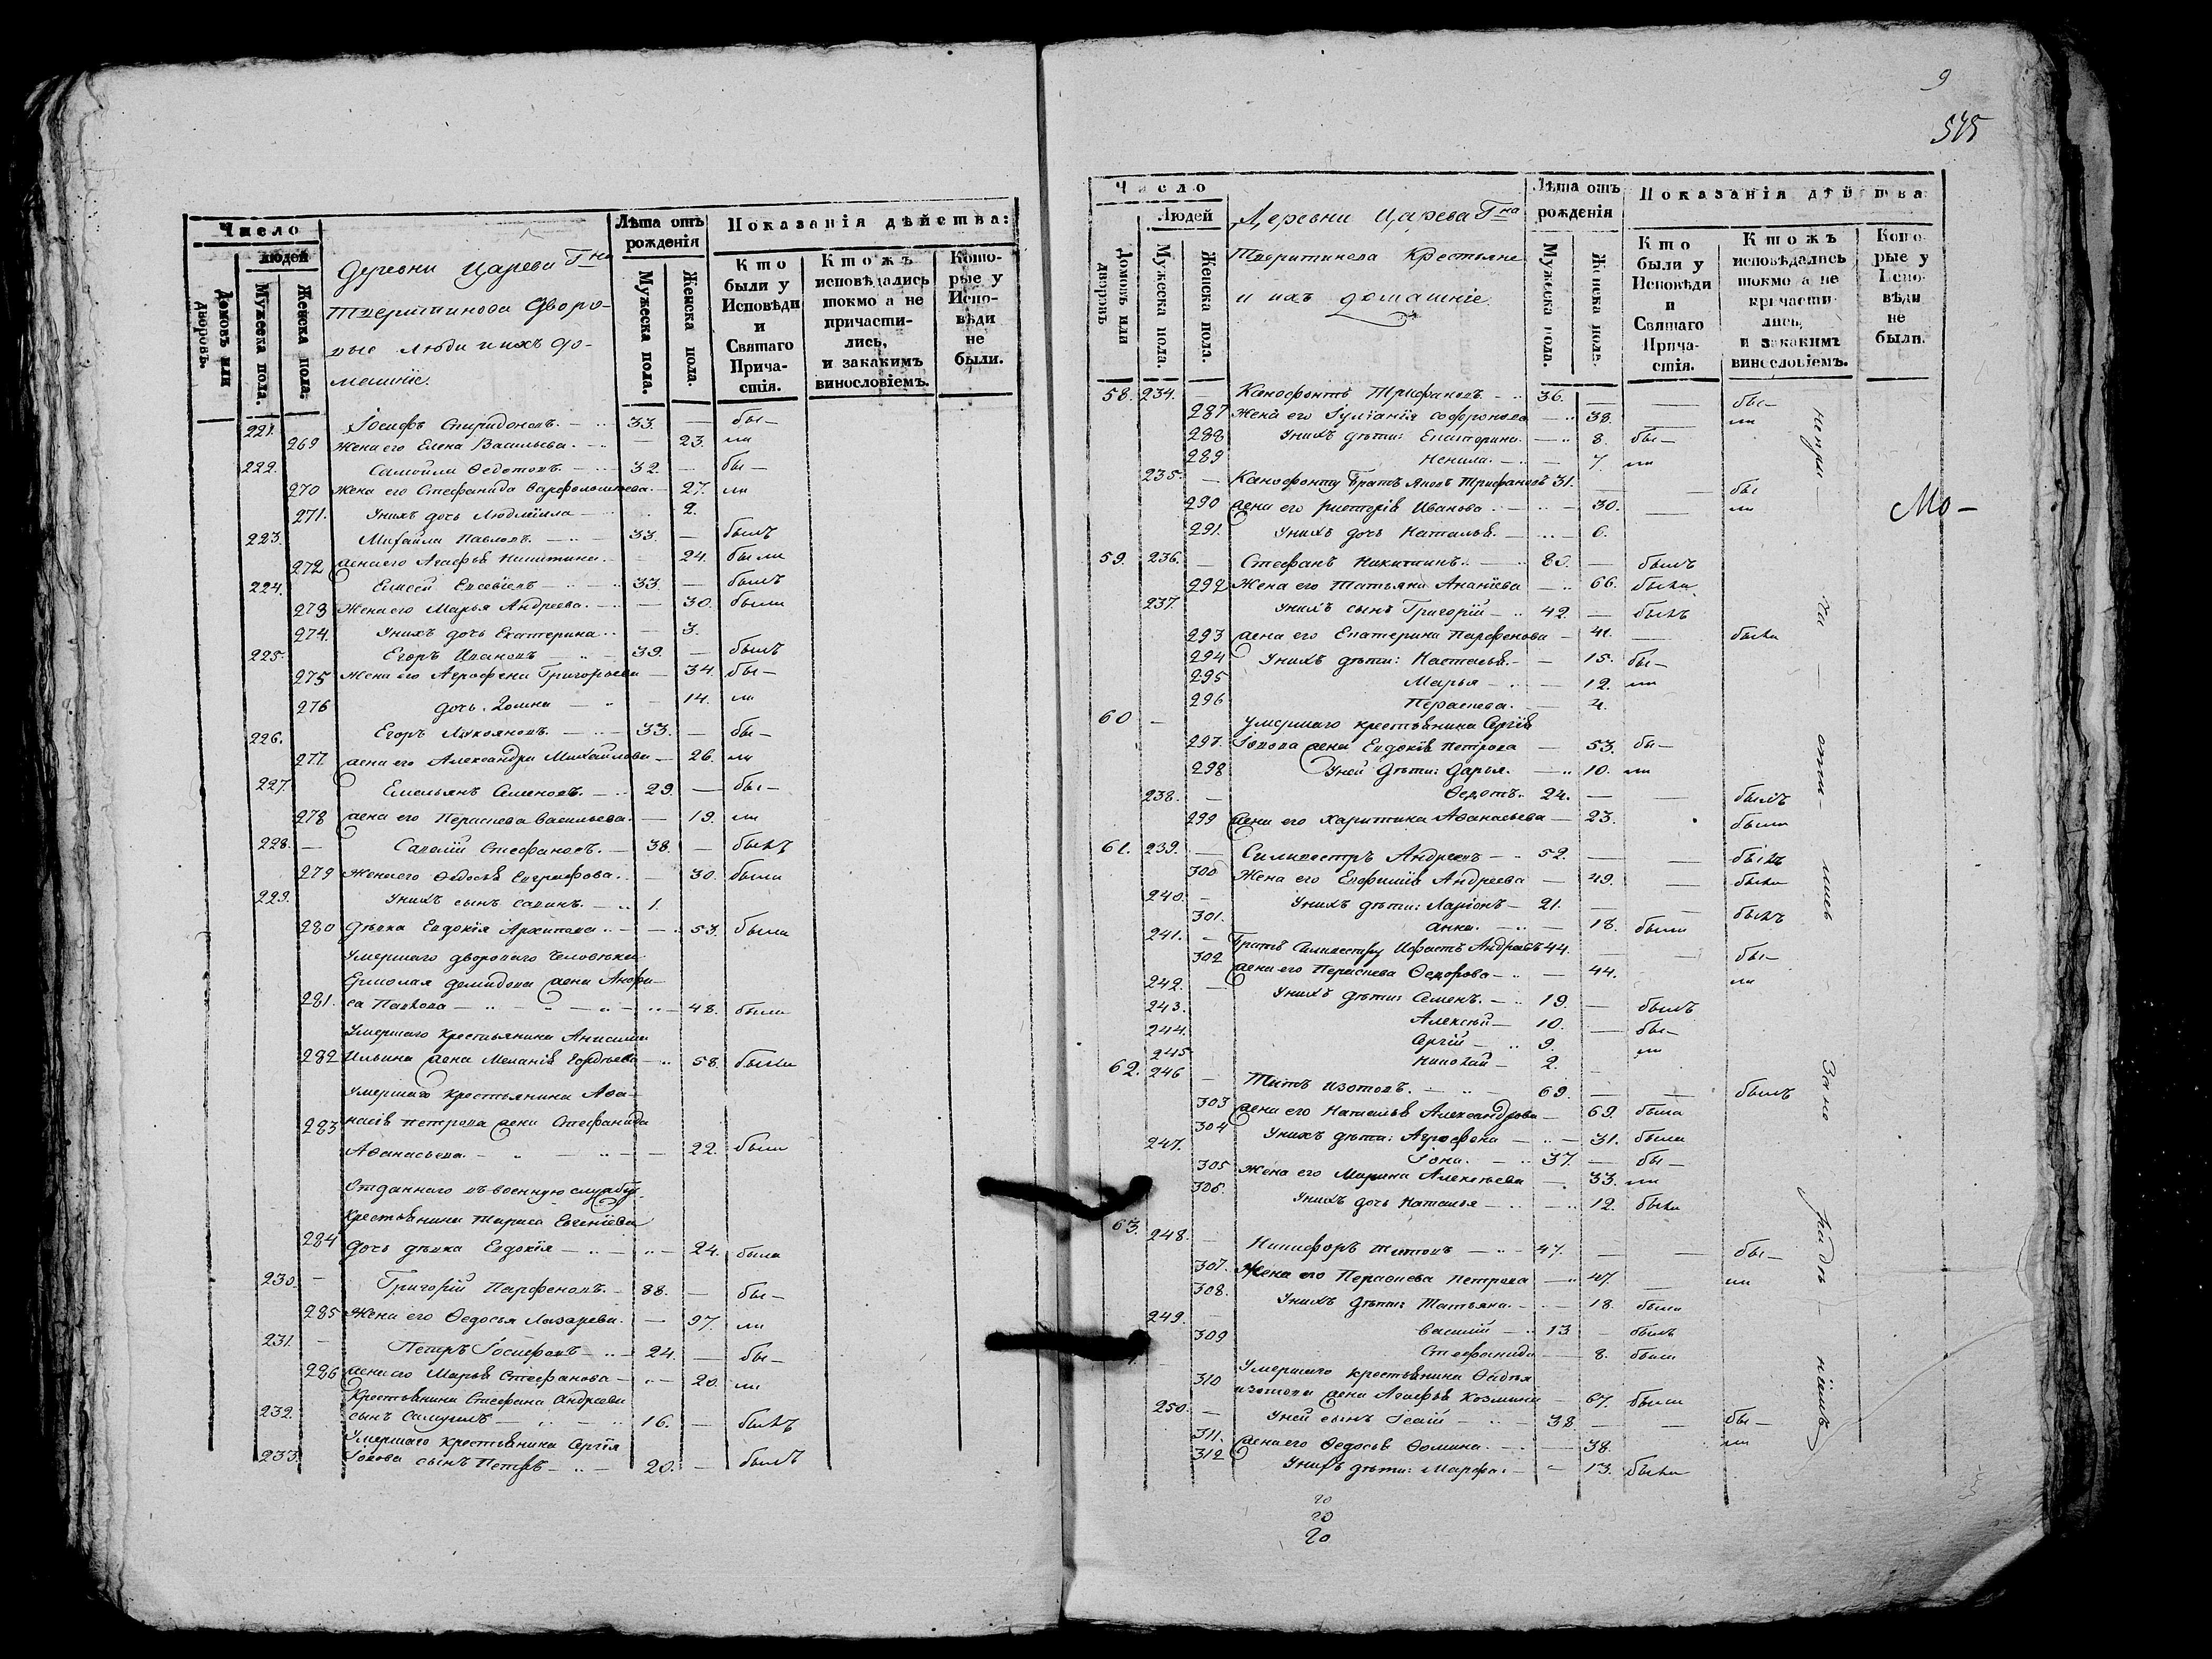 Число
людей
Домовъ или дворовъ.
Мужеска пола.
Женска пола.
Деревни Царева Гна
Тверитинова Дворо-
вые люди и ихъ до-
машніе.
Лѣта отъ рожденія
Мужеска пола.
Женска пола.
Показанія дѣйства:
Кто были у Исповѣди и Святаго Причастія.
Кто жъ исповѣдались токмо а не причастились, и за какимъ винословіемъ.
Которые у Исповѣди не были.
221. Іосифъ Спиридоновъ. 33. — бы-
269 Жена его Елена Васильева. — 23. ли
222. Самойла Ѳедотовъ. 32 — бы-
270 Жена его Стефанида Варфоломѣева. — 27. ли
271. У нихъ дочь Людмила — 2.
223. Михайла Павловъ. 33. — былъ
272 жена его Агафья Никитина. 24. была
224. Елисей Евсевіевъ 33. — былъ
273 Жена его Марья Андреева. — 30. была
274. У нихъ дочь Екатерина — 3.
225. Егоръ Ивановъ 39. — былъ
275 Жена его Агрофена Григорьева — 34. бы-
276 дочь 14. ли
226. Егоръ Лукояновъ. 33. — бы-
277 жена его Александра Михайлова — 26. ли
227. Емельянъ Семеновъ. 29. — бы-
278 жена его Параскева Васильева. — 19. ли
228. — Савелій Стефановъ. — 38. — былъ
279 Жена его Ѳедосья Евграфова. — 30. была
229. У нихъ сынъ — 1.
280 Дѣвка Евдокія Архипова — 53. была
Умершаго двороваго человѣка
Ермолая Демидова жена Анфи-
281. са Павлова — 48. была
Умершаго крестьянина Анисима
282 Ильина жена Меланія — 58. была
Умершаго крестьянина Аѳа-
283 насія Петрова жена Стефанида
Аѳанасьева. — 22. была
Отданнаго въ военную службу
крестьянина Тараса Евгеніева
284 дочь дѣвка Евдокія — 24. была
230. — Григорій Парфеновъ. — 88. — бы-
285 Жена его Ѳедосья Лазарева. — 97. ли
231. — Петръ Іосифовъ — 24. — бы-
286 жена его Марья Стефанова — 20. ли
Крестьянина Стефана Андреева
232. сынъ Самуилъ — 16. — былъ
Умершаго крестьянина Сергія
233. Іовова сынъ Петръ — 20. — былъ
9
515
Число
Людей
Домовъ или дворовъ
Мужеска пола.
Женска пола.
Деревни Царева Гна
Тверитинова Крестьяне
и ихъ домашніе.
Лѣта отъ рожденія
Мужеска пола.
Женска пола.
Показанія дѣйства
Кто были у Исповѣди и Святаго Причастія.
Кто жъ исповѣдались токмо а не причастились, и за какимъ винословіемъ.
Которые у Исповѣди не были.
58. 234. — Ксенофонтъ Трифановъ 36. — бы-
287 Жена его Іуліанія Софронова — 38. ли
288 У нихъ дѣти: Екатерина — 8. бы-
289 Ненила. — 7. ли
235. — Ксенофонту братъ Яковъ Трифановъ 31. — бы
290 жена его Иванова — 30. ли
291. У нихъ дочь Наталья. — 6.
59. 236. — Стефанъ Никитинъ. 80. — былъ
292 Жена его Татьяна Ананіева — 66. была
237. У нихъ сынъ Григорій — 42. — былъ
293 жена его Екатерина Парфенова — 41. — была
294 У нихъ дѣти: Настасья. — 15. бы-
295 Марья — 12. ли
296 Параскева. 4.
60 — Умершаго крестьянина Сергія
297. Іовова жена Евдокія Петрова — 53. бы-
298 У ней дѣти: Дарья. — 10. ли
238. — Ѳедотъ. 24. — былъ
299 жена его Харитина Аѳанасьева — 23. была
61. 239. — Силивестръ Андреевъ — 52. — былъ
300 Жена его Евфимія Андреева — 49. — была
240. — У нихъ дѣти: Ларіонъ — 21. — былъ
301. Анна. — 18. была
241. — Братъ Силивестру Андреевъ 44. — бы-
302 жена его Параскева Ѳедорова — 44. ли
242. — У нихъ дѣти: Семенъ. — 19 — былъ
243. Алексѣй — 10. — бы-
244. Сергій — 9. ли
245 Николай — 2.
62. 246 — Титъ Изотовъ. 69. — былъ
303 жена его Наталья Александрова — 69. была
304 У нихъ дѣти: Агрофена — 31. была
247. Іона. — 37. — бы-
305 Жена его Марина Алексѣева — 33. ли
306. У нихъ дочь Наталья — 12. была
63. 248. — Никифоръ Титовъ — 47. — бы-
307. Жена его Параскева Петрова — 47. — ли
308. У нихъ дѣти: Татьяна. — 18. была
249. — Василій — 13 — былъ
309 Стефанида — 8. была
Умершаго крестьянина
310 Изотова жена Агафья Козмина — 67. была
250. — У ней сынъ Исай — 38. — бы-
311. жена его Ѳедосья Ѳомина. — 38. ли
312 У нихъ дѣти: Марфа. — 13. была
Непри-
ча-
сти-
лись
За не
ніемъ
Мо-
20
20
20